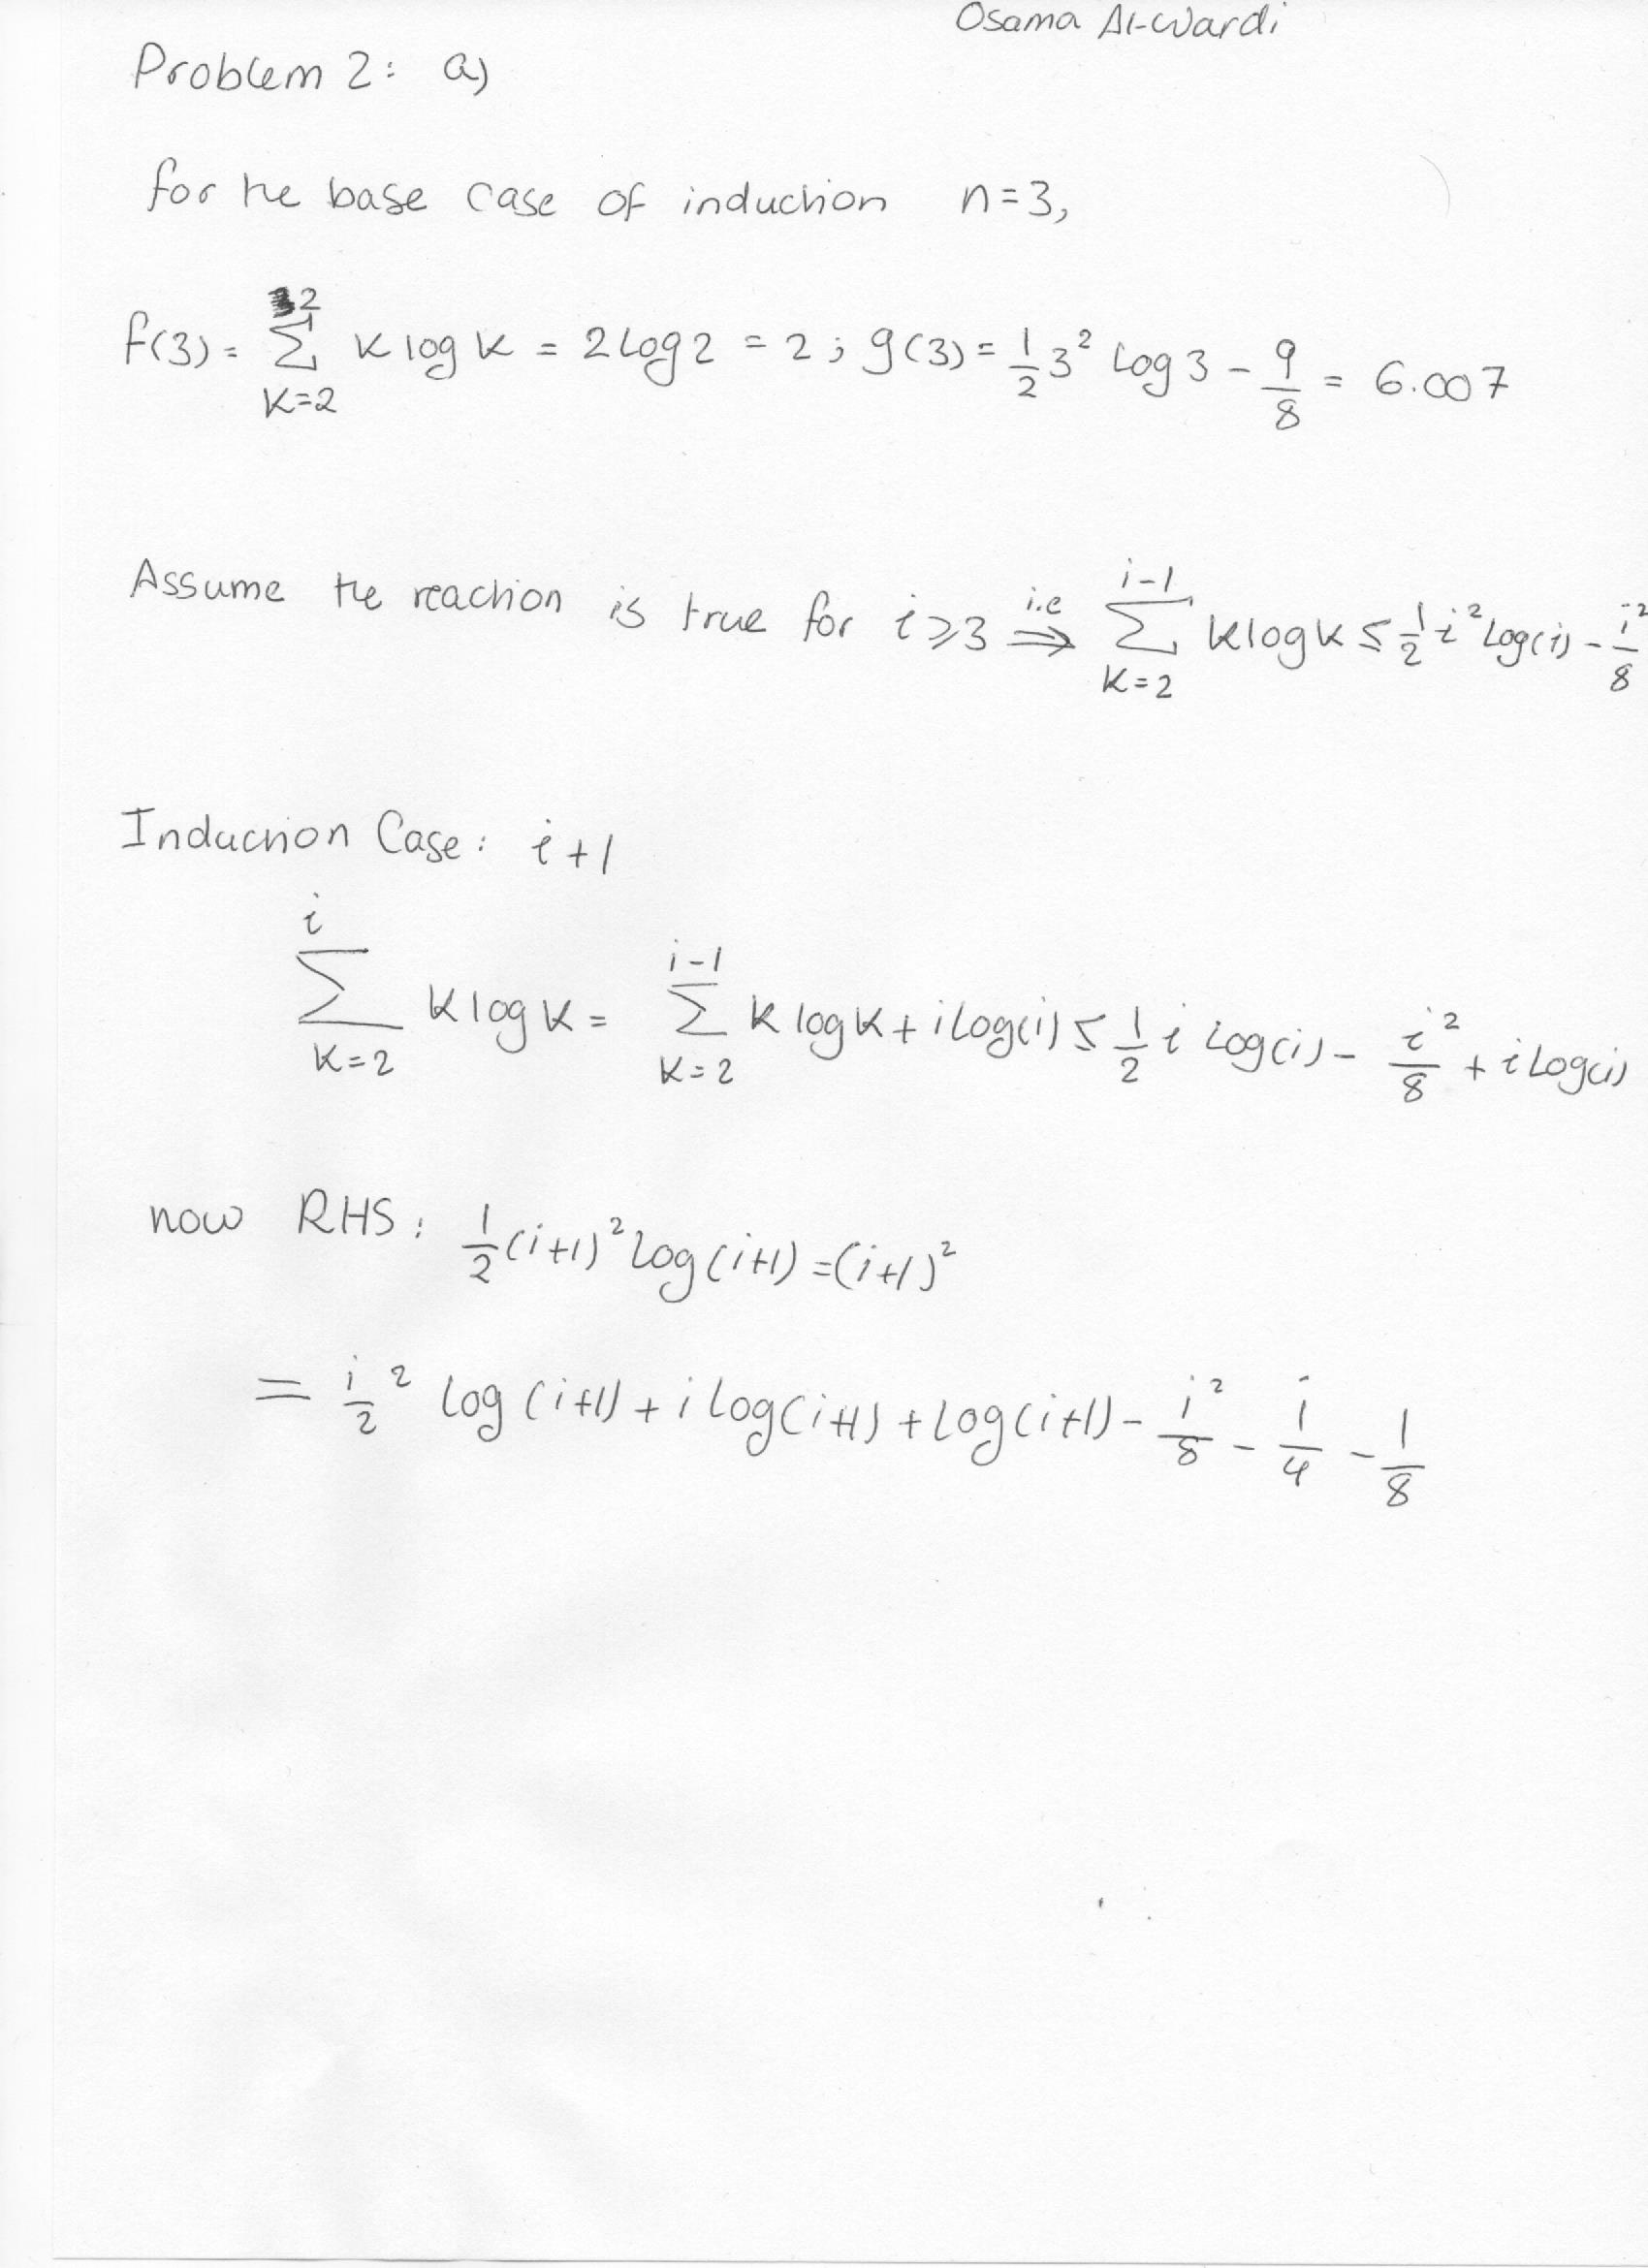 Osama Al-Wardi
Problem 2: a)
for the base case of induction n=3,
f(3) = ∑_{K=2}^{2} K log K = 2 log 2 = 2 ; g(3) = 1/2 3² log 3 - 9/8 = 6.007
Assume the reaction is true for i ≥ 3 i.e ⇒ ∑_{K=2}^{i-1} K log K ≤ 1/2 i² log(i) - i²/8
Induction Case: i+1
∑_{K=2}^{i} K log K = ∑_{K=2}^{i-1} K log K + i log(i) ≤ 1/2 i log(i) - i²/8 + i log(i)
now RHS: 1/2 (i+1)² log(i+1) = (i+1)²
= i/2 ² log(i+1) + i log(i+1) + log(i+1) - i²/8 - i/4 - 1/8